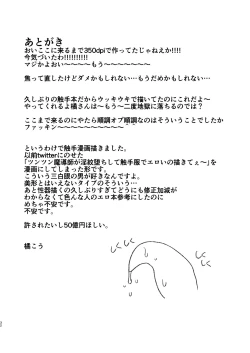 あとがき
おいここに来るまで350dpiで作ってたじゃねえか!!!!
今気づいたわ!!!!!!!!!!
マジかよおい～～～～もう～～～～～～～
焦って直したけどダメかもしれない…もうだめかもしれない…
久しぶりの触手本だからウッキウキで描いてたのにこれだよ～
やってくれるよ橘さんは～もう～二度地獄に落ちるのでは？
ここまで来るのにやたら順調オブ順調なのはそういうことでしたか
ファッキン～～～～～～～～～～
というわけで触手漫画描きました。
以前twitterにのせた
「ツンツン魔導師が淫紋堕ちして触手服でエロいの描きてぇ～」を
漫画にしてしまった形です。
こういう三白眼の男が好きなんですよ。
美形とはいえないタイプのそういう…
あと性器描くの久しぶりすぎてどうにも修正加減が
わからなくて色んな人のエロ本参考にしたのに
めちゃ不安です。
不安です。
許されたいし50億円ほしい。
橘こう
しく
しく
しく
しく